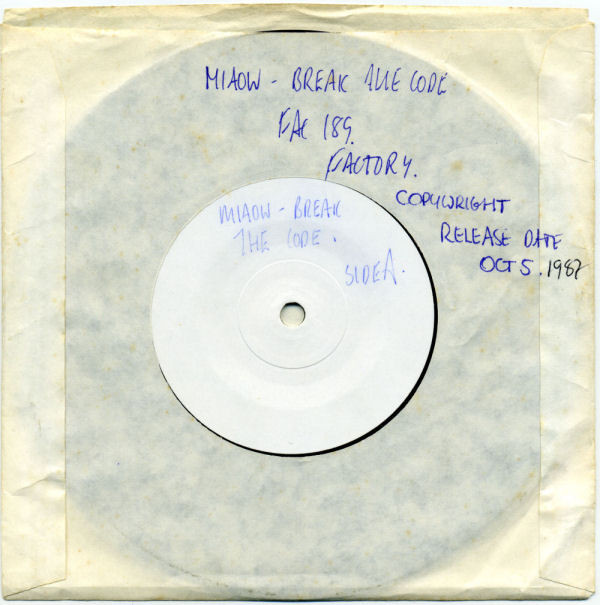 MIAOW - BREAK THE CODE
FAC 189.
FACTORY.
COPYWRIGHT
RELEASE DATE
OCT 5. 1987
MIAOW - BREAK
THE CODE.
SIDE A.